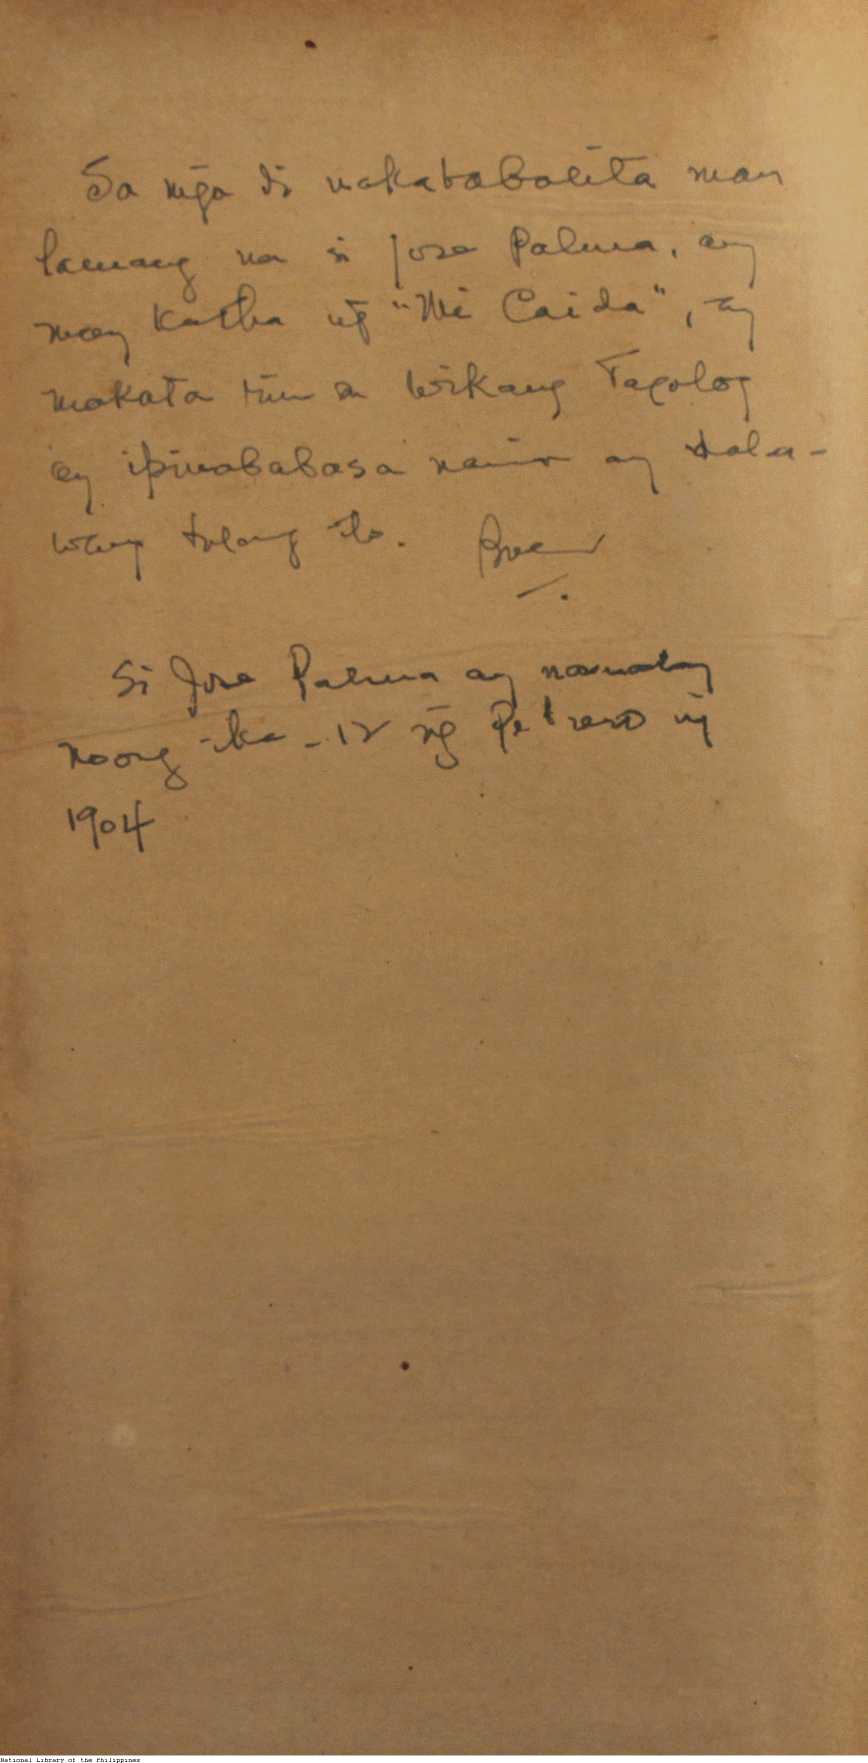 Sa mga di nakababalita man
lamang na si Jose Palma, ang
may katha ng̃ "Mi Caida", ay
makata rin sa wikang Tagalog
ay ipinababasa namin ang dala-
wang tulang ito.
Si Jose Palma ay namatay
noong ika-12 ng̃ Pebrero ng̃
1904
National Library of the Philippines